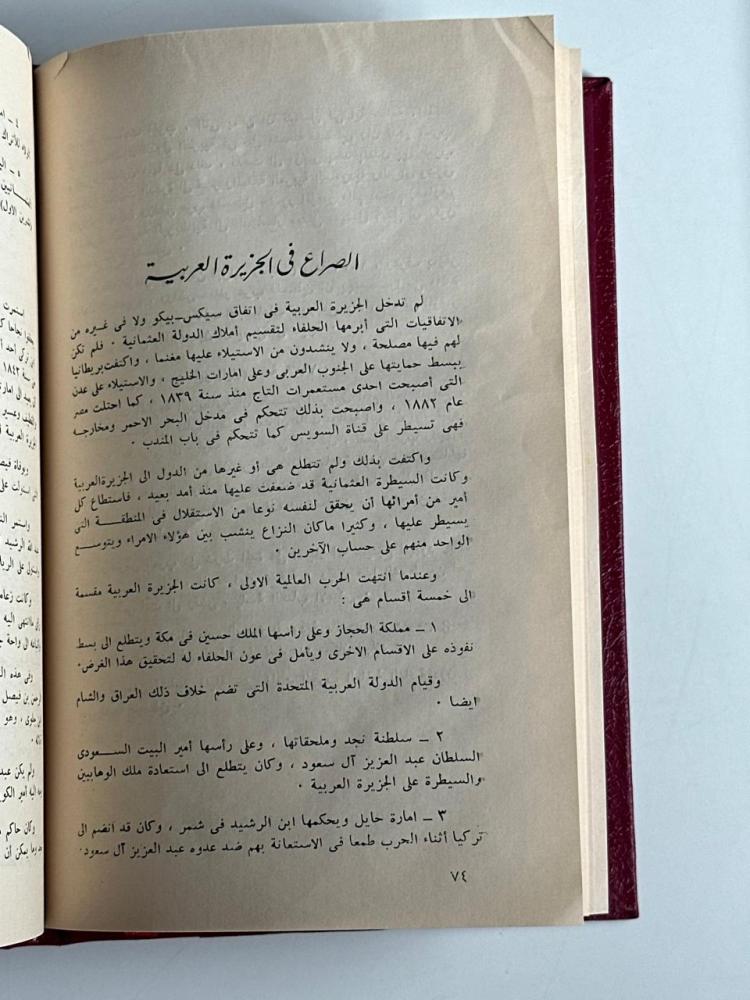 الصراع فى الجزيرة العربية
لم تدخل الجزيرة العربية فى اتفاق سيكس_بيكو ولا فى غيره من
الاتفاقيات التى أبرمها الحلفاء لتقسيم أملاك الدولة العثمانية . فلم تكن
لهم فيها مصلحة ، ولا ينشدون من الاستيلاء عليها مغنما ، واكتفت بريطانيا
ببسط حمايتها على الجنوب العربى وعلى امارات الخليج ، والاستيلاء على عدن
التى أصبحت احدى مستعمرات التاج منذ سنة ١٨٣٩ ، كما احتلت مصر
عام ١٨٨٢ ، واصبحت بذلك تتحكم فى مدخل البحر الاحمر ومخارجه
فهى تسيطر على قناة السويس كما تتحكم فى باب المندب .
واكتفت بذلك ولم تتطلع هى أو غيرها من الدول الى الجزيرة العربية
وكانت السيطرة العثمانية قد ضعفت عليها منذ أمد بعيد ، فاستطاع كل
أمير من أمرائها أن يحقق لنفسه نوعا من الاستقلال فى المنطقة التى
يسيطر عليها ، وكثيرا ماكان النزاع ينشب بين هؤلاء الامراء ويتوسع
الواحد منهم على حساب الآخرين .
وعندما انتهت الحرب العالمية الاولى ، كانت الجزيرة العربية مقسمة
الى خمسة أقسام هى :
١ _ مملكة الحجاز وعلى رأسها الملك حسين فى مكة ويتطلع الى بسط
نفوذه على الاقسام الاخرى ويأمل فى عون الحلفاء له لتحقيق هذا الغرض.
وقيام الدولة العربية المتحدة التى تضم خلاف ذلك العراق والشام
ايضا .
٢ _ سلطنة نجد وملحقاتها ، وعلى رأسها أمير البيت السعودى
السلطان عبد العزيز آل سعود ، وكان يتطلع الى استعادة ملك الوهابيين
والسيطرة على الجزيرة العربية .
٣ _ امارة حايل ويحكمها ابن الرشيد فى شمر ، وكان قد انضم الى
تركيا أثناء الحرب طمعا فى الاستعانة بهم ضد عدوه عبد العزيز آل سعود.
٧٤